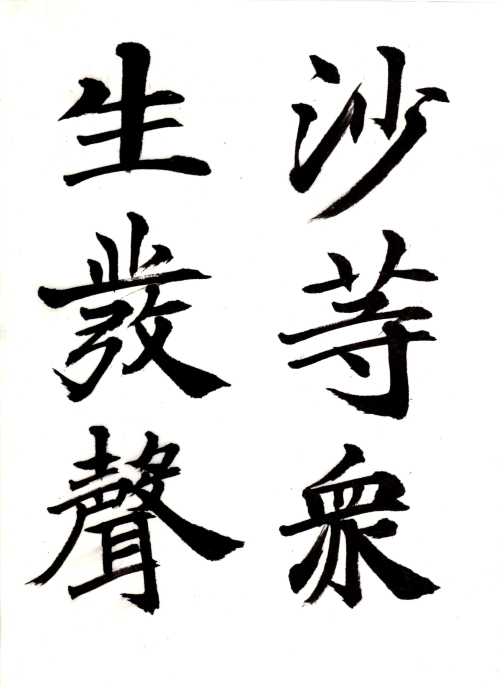 沙等衆
生發聲